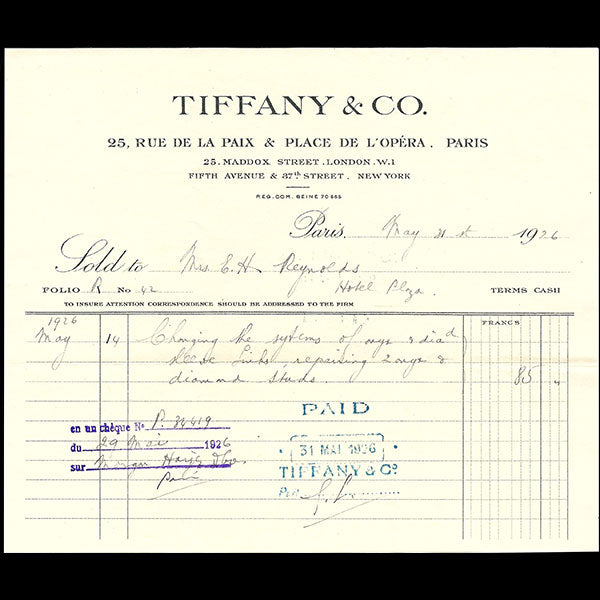 TIFFANY & CO.
25, RUE DE LA PAIX & PLACE DE L'OPÉRA. PARIS
25. MADDOX STREET. LONDON. W.1
FIFTH AVENUE & 37th STREET. NEW YORK
REG. COM. SEINE 70665
Paris. May 31st 1926
Sold to Mrs. E. H. Reynolds
FOLIO R No 42 Hotel Plaza. TERMS CASH
TO INSURE ATTENTION CORRESPONDENCE SHOULD BE ADDRESSED TO THE FIRM
1926 FRANCS
May 14 Changing the systems of onyx & diad
sleeve links, repairing 2 onyx &
diamond studs. 85 "
PAID
en un chèque No P. 34419
du 29 Mai 1926
31 MAI 1926
sur Morgan Harjes
TIFFANY & Co.
Paris
Per